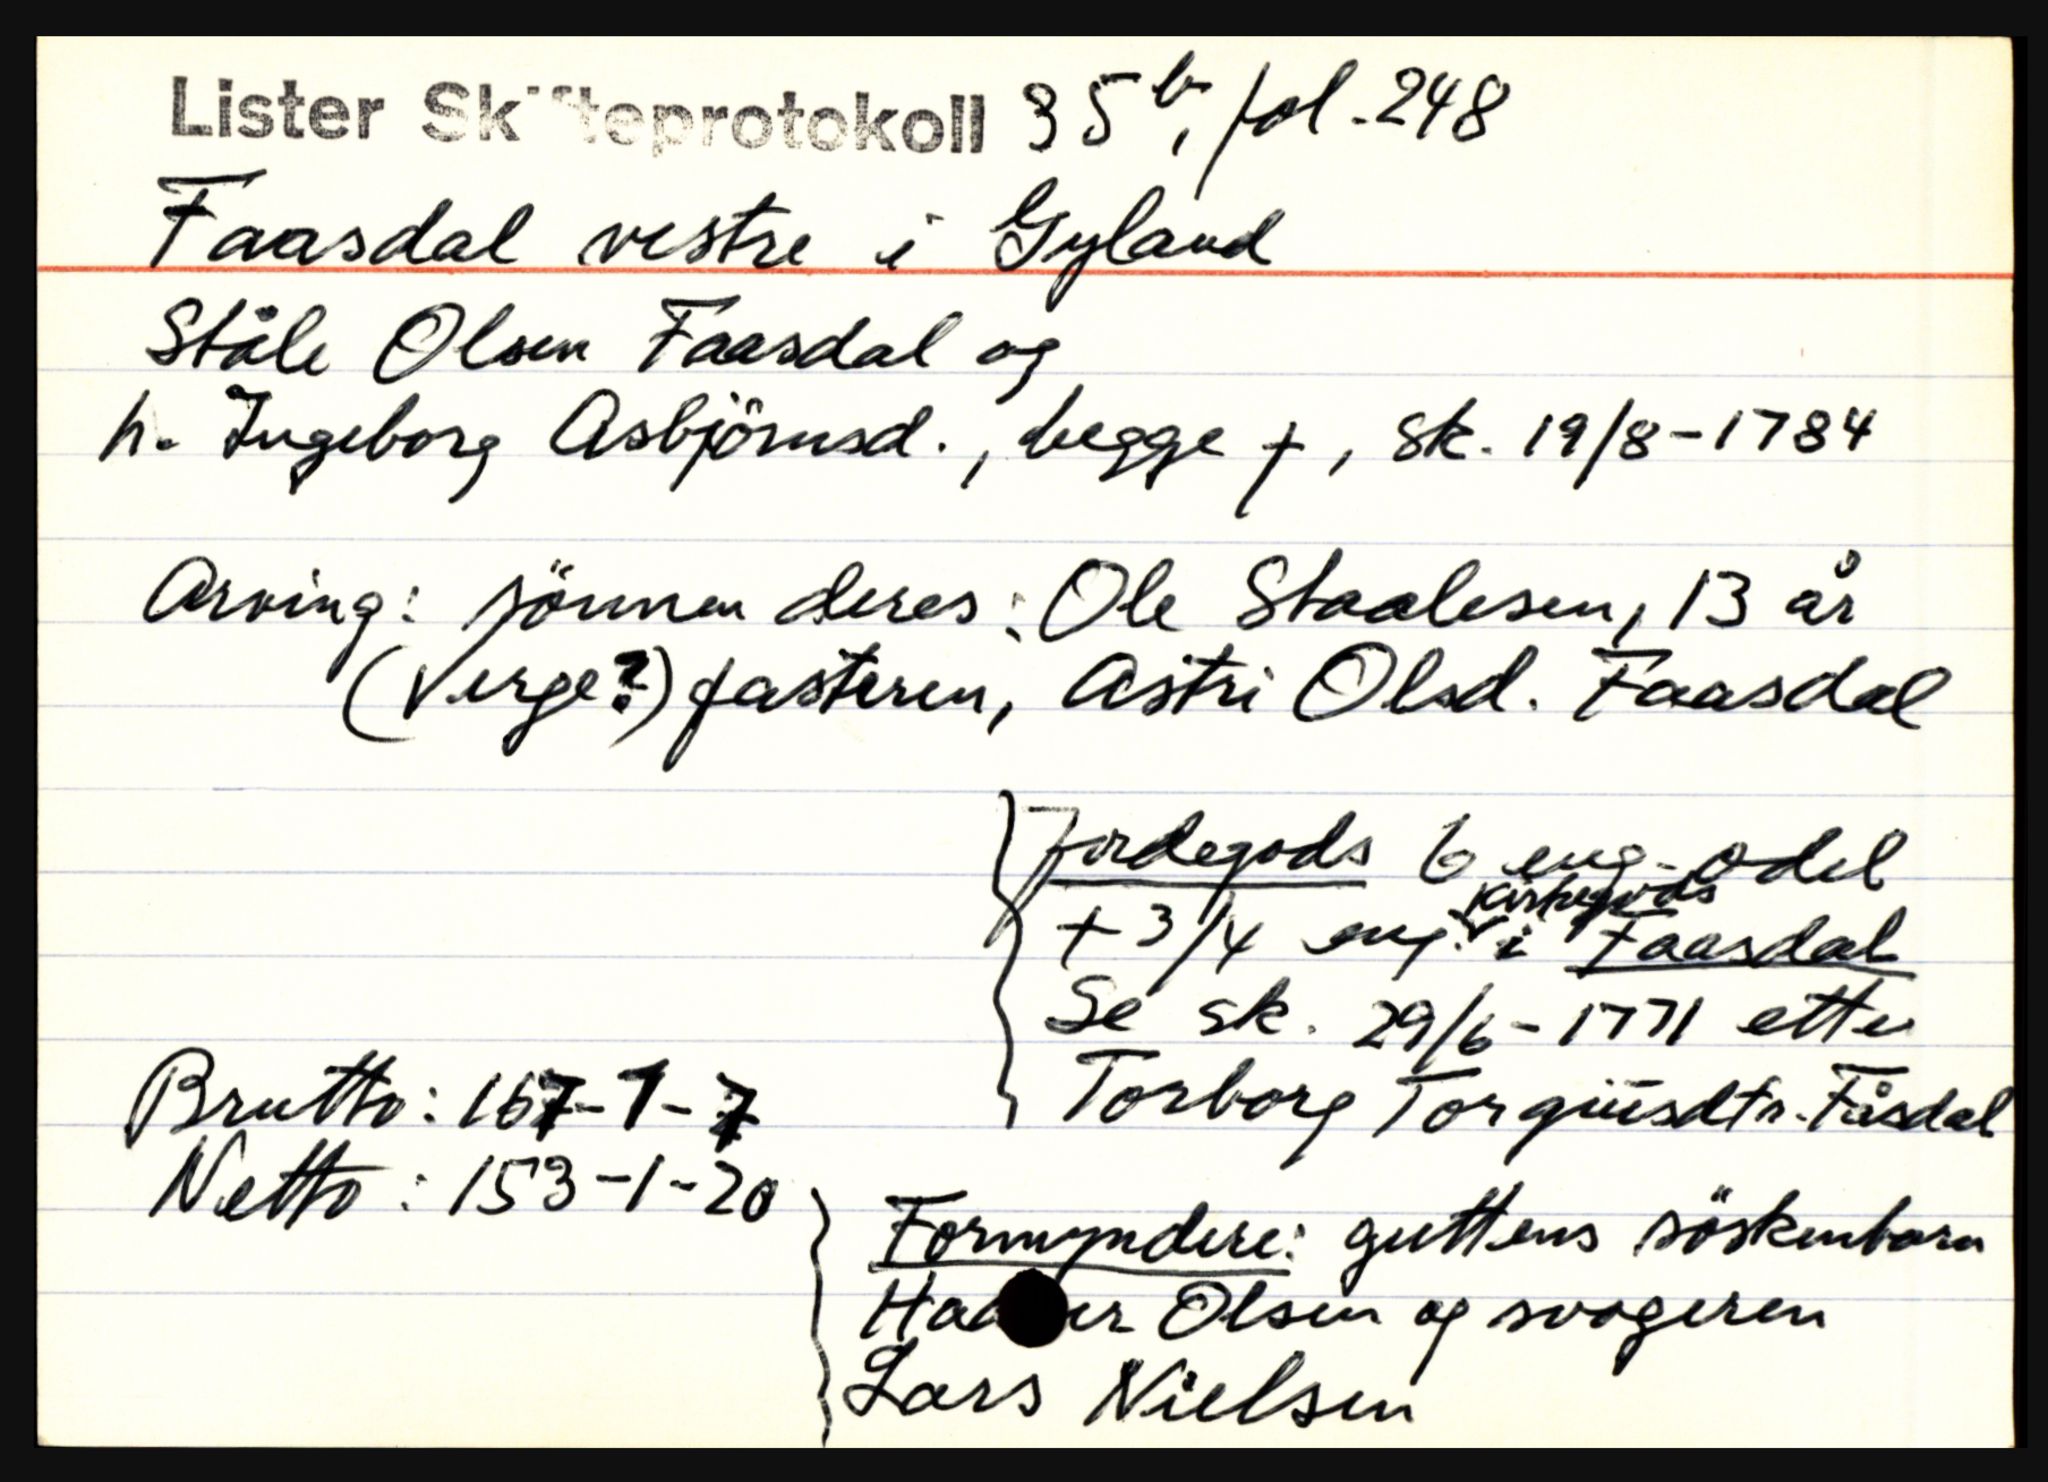 Lister Skifteprotokoll 35b, fol. 248
Faasdal vestre i Gyland
Ståle Olsen Faasdal og
h. Ingeborg Asbjörnsd., begge +, sk. 19/8-1784
Arving: sönnen deres: Ole Staalesen, 13 år
(Verge?) fasteren, Astri Olsd. Faasdal
Jordegods 6 eng. odel
kirkegods
+ 3/4 eng. i Faasdal
Se sk. 29/6-1771 etter
Torborg Torgiusdtr. Fåsdal
Brutto: 167-1-7
Netto: 153-1-20
Formyndere: guttens söskenbarn
Olsen og svogeren
Lars Nielsen